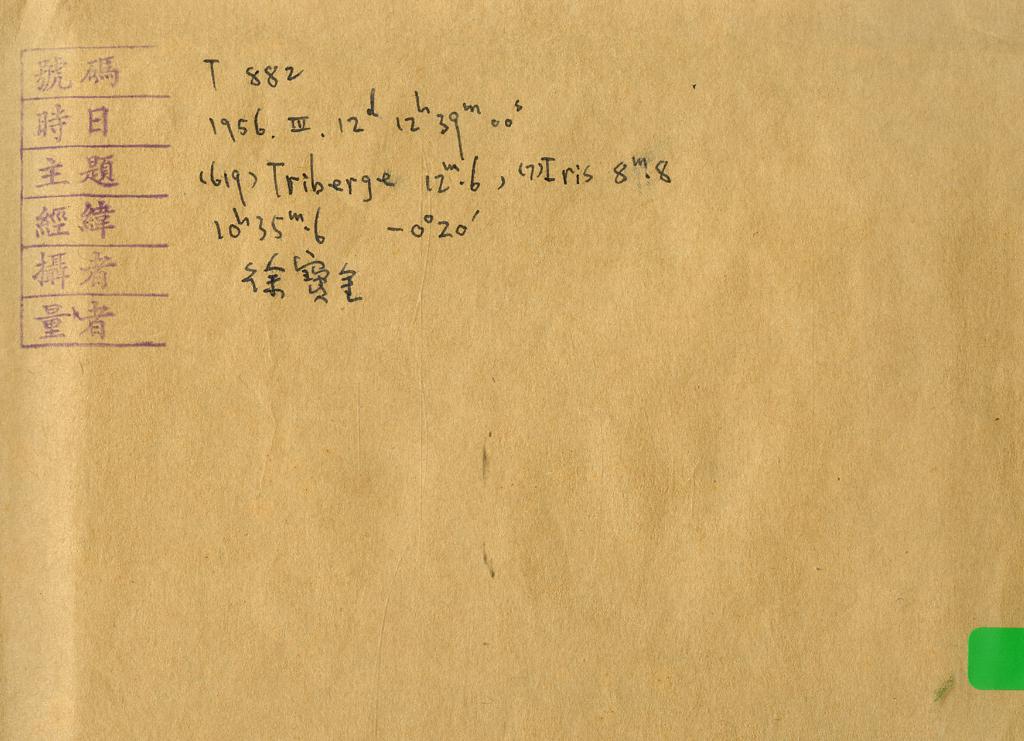 號碼 T 882
時日 1956. III. 12ᵈ 12ʰ 39ᵐ 00ˢ
主題 (619) Triberge 12ᵐ.6, (7) Iris 8ᵐ.8
經緯 10ʰ35ᵐ.6 -0°20′
攝者 徐寶全
量者